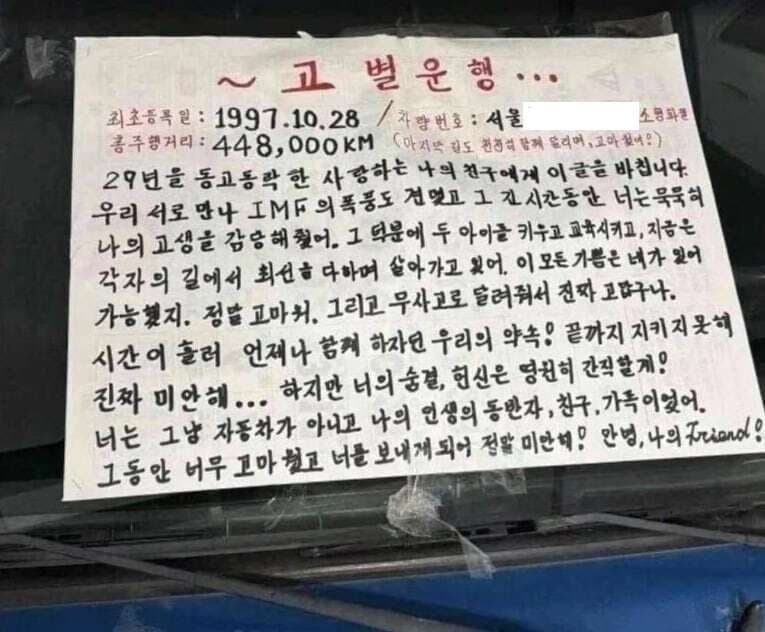 ~ 고 별 운 행 ...
최초등록일 : 1997.10.28 / 차량번호 : 서울 소형화물
총주행거리 : 448,000KM (마지막 길도 천천히 함께 달리며, 고마웠어!)
29년을 동고동락 한 사랑하는 나의 친구에게 이 글을 바칩니다.
우리 서로 만나 IMF의 폭풍도 견뎠고 그 긴 시간동안 너는 묵묵히
나의 고생을 감당해 줬어. 그 덕분에 두 아이를 키우고 교육시키고, 지금은
각자의 길에서 최선을 다하며 살아가고 있어. 이 모든 기쁨은 네가 있어
가능했지. 정말 고마워. 그리고 무사고로 달려줘서 진짜 고맙구나.
시간이 흘러 언제나 함께 하자던 우리의 약속! 끝까지 지키지 못해
진짜 미안해... 하지만 너의 숨결, 헌신은 영원히 간직할게!
너는 그냥 자동차가 아니고 나의 인생의 동반자, 친구, 가족이었어.
그동안 너무 고마웠고 너를 보내게 되어 정말 미안해! 안녕, 나의 Friend!